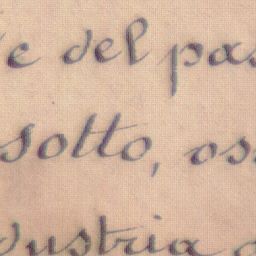 e del pas
sotto, os
dustria